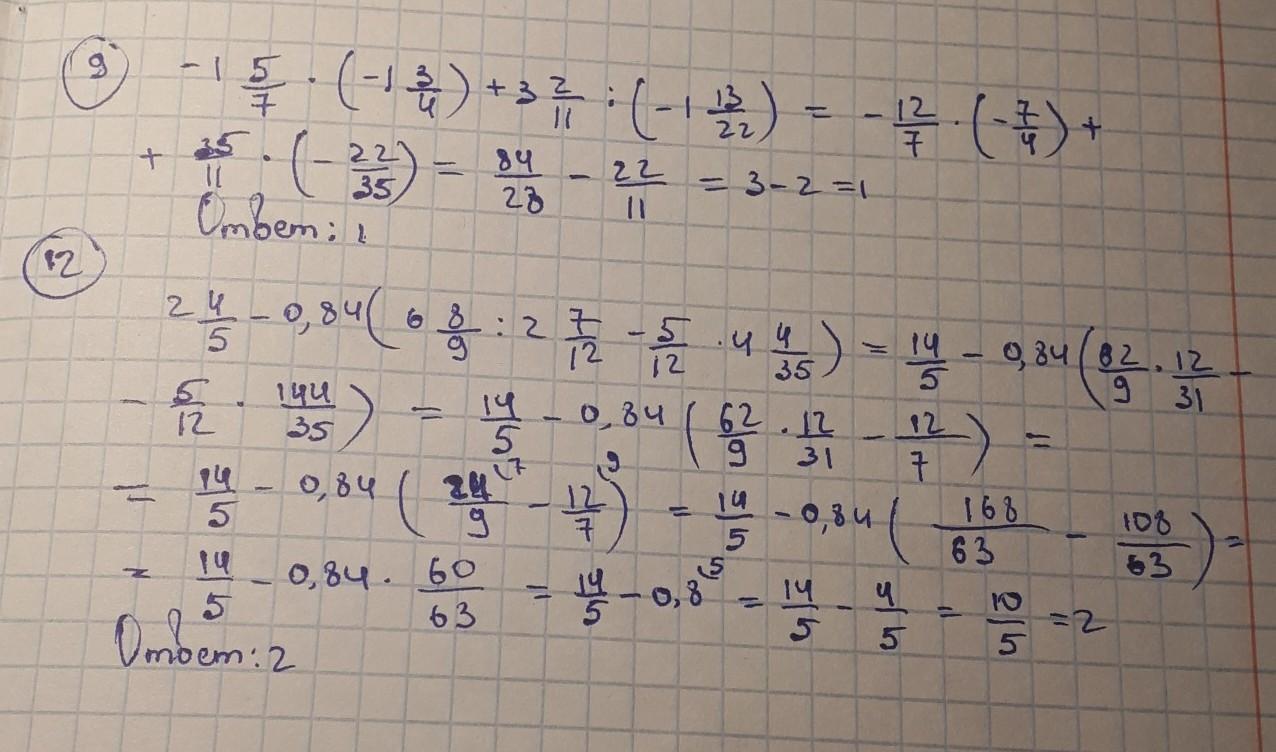 9 -1 5/7 · (-1 3/4) + 3 2/11 : (-1 13/22) = - 12/7 · (- 7/4) +
+ 35/11 · (- 22/35) = 84/28 - 22/11 = 3 - 2 = 1
Ответ: 1
12
2 4/5 - 0,84 (6 8/9 : 2 7/12 - 5/12 · 4 4/35) = 14/5 - 0,84 (62/9 · 12/31 -
- 5/12 · 144/35) = 14/5 - 0,84 (62/9 · 12/31 - 12/7) =
= 14/5 - 0,84 (24/9 (7 - 12/7 (9) = 14/5 - 0,84 (168/63 - 108/63) =
= 14/5 - 0,84 · 60/63 = 14/5 - 0,8 (5 = 14/5 - 4/5 = 10/5 = 2
Ответ: 2